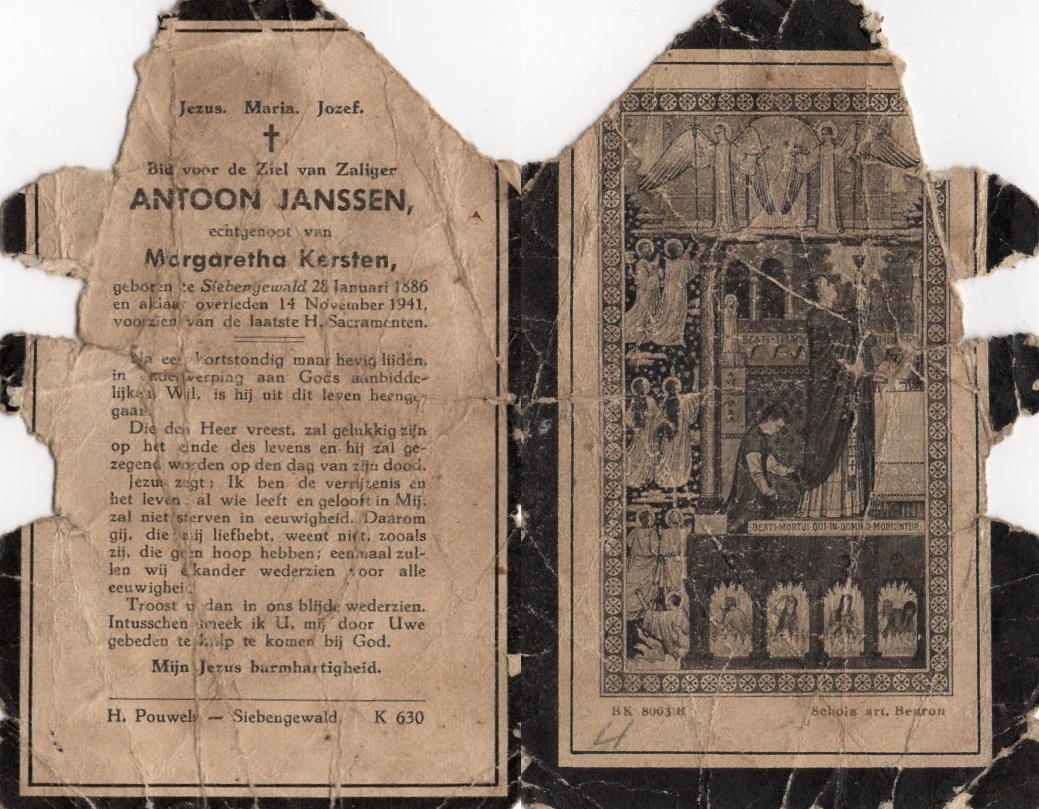 Jezus. Maria. Jozef.
Bid voor de Ziel van Zaliger
ANTOON JANSSEN,
echtgenoot van
Margaretha Kersten,
geboren te Siebengewald 28 Januari 1886
en aldaar overleden 14 November 1941,
voorzien van de laatste H. Sacramenten.
Na een kortstondig maar hevig lijden,
in onderwerping aan Gods aanbidde-
lijken Wil, is hij uit dit leven heenge-
gaan.
Die den Heer vreest, zal gelukkig zijn
op het einde des levens en hij zal ge-
zegend worden op den dag van zijn dood.
Jezus zegt: Ik ben de verrijzenis en
het leven; al wie leeft en gelooft in Mij,
zal niet sterven in eeuwigheid. Daarom
gij, die mij liefhebt, weent niet, zooals
zij, die geen hoop hebben; eenmaal zul-
len wij elkander wederzien voor alle
eeuwigheid.
Troost u dan in ons blijde wederzien.
Intusschen smeek ik U, mij door Uwe
gebeden te hulp te komen bij God.
Mijn Jezus barmhartigheid.
H. Pouwels — Siebengewald. K 630
BEATI MORTUI QUI IN DOMINO MORIUNTUR
BK 8003 B Schola art. Beuron
4